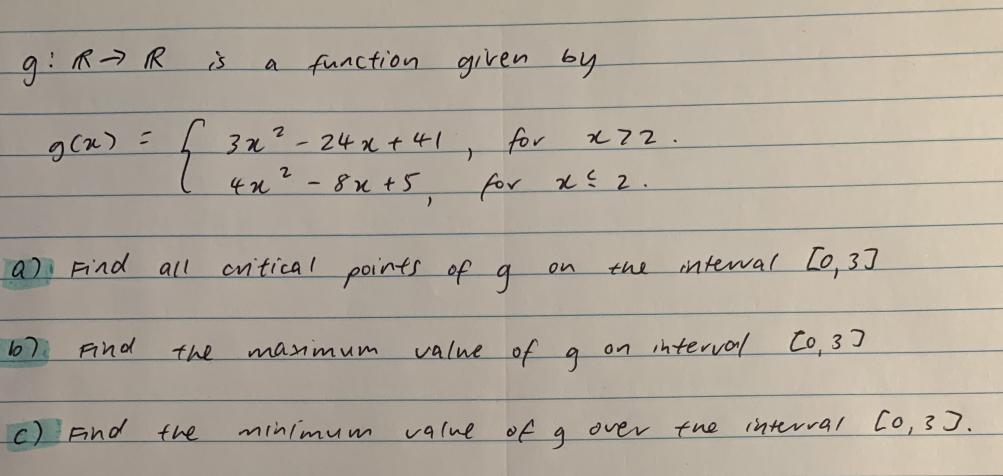 g: ℝ → ℝ is a function given by
g(x) = { 3x² - 24x + 41, for x > 2.
4x² - 8x + 5, for x ≤ 2.
a) Find all critical points of g on the interval [0,3]
b) Find the maximum value of g on interval [0,3]
c) Find the minimum value of g over the interval [0,3].